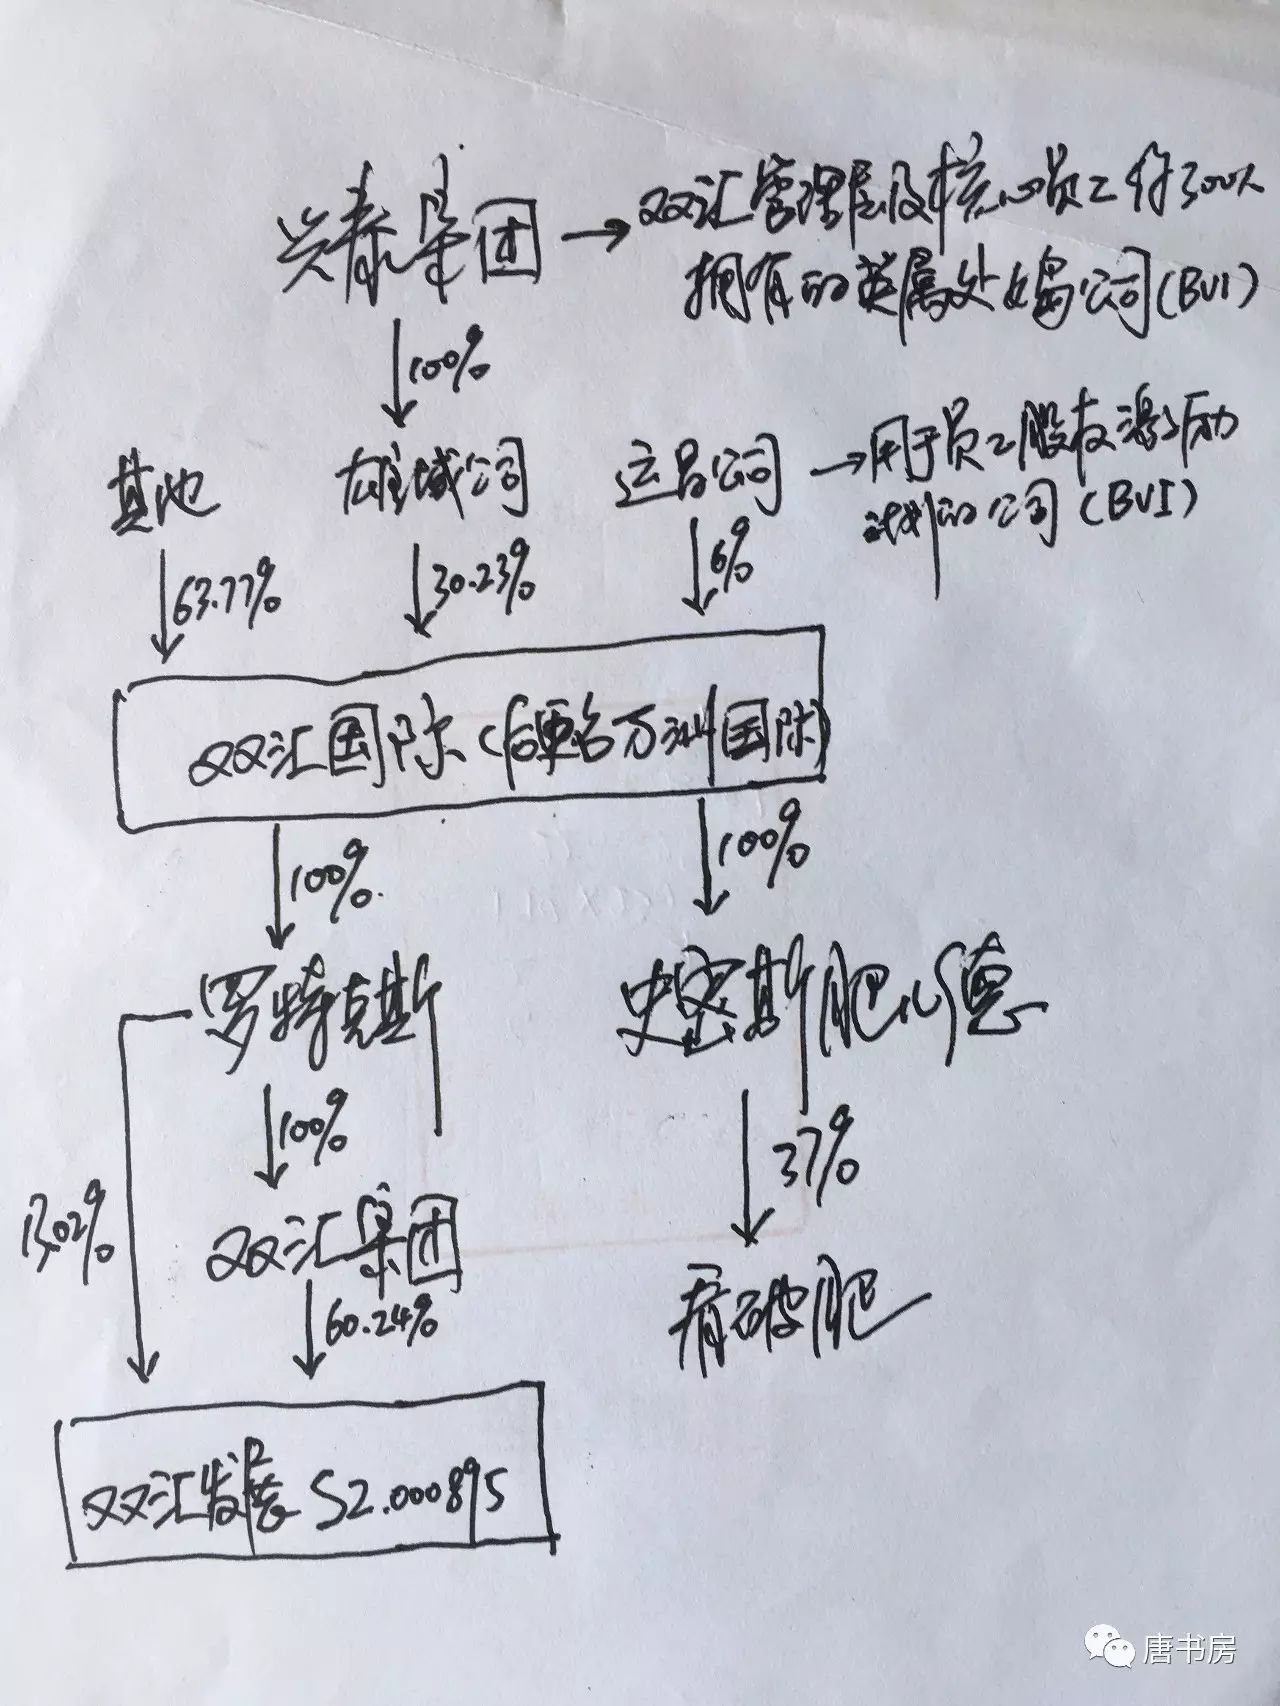 兴泰集团 → 双汇管理层及核心员工约300人
拥有的英属处女岛公司(BVI)
100%
其他
雄域公司
运昌公司 → 用于员工股权激励
计划的公司(BVI)
63.77%
30.23%
6%
双汇国际(后更名万洲国际)
100%
100%
罗特克斯
史密斯肥儿德
100%
37%
13.02%
双汇集团
看破肥
60.24%
双汇发展 SZ.000895
唐书房